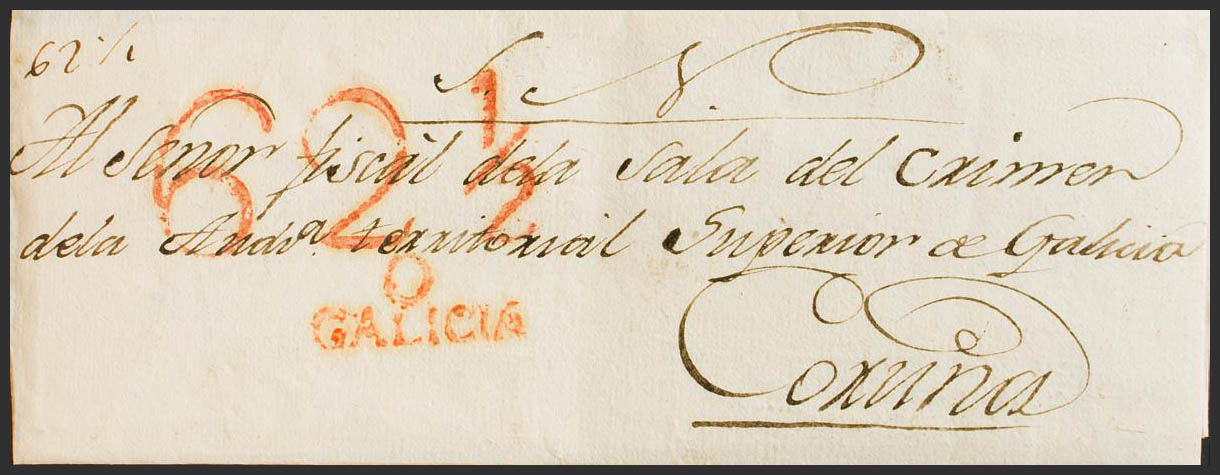 62 ½
S. N.
62 ½
Al Señor fiscal dela Sala del Crimen
dela Audª. territorial Superior de Galicia
O
GALICIA
Coruña